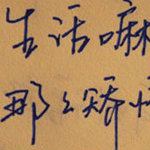 生活嘛
那么矫